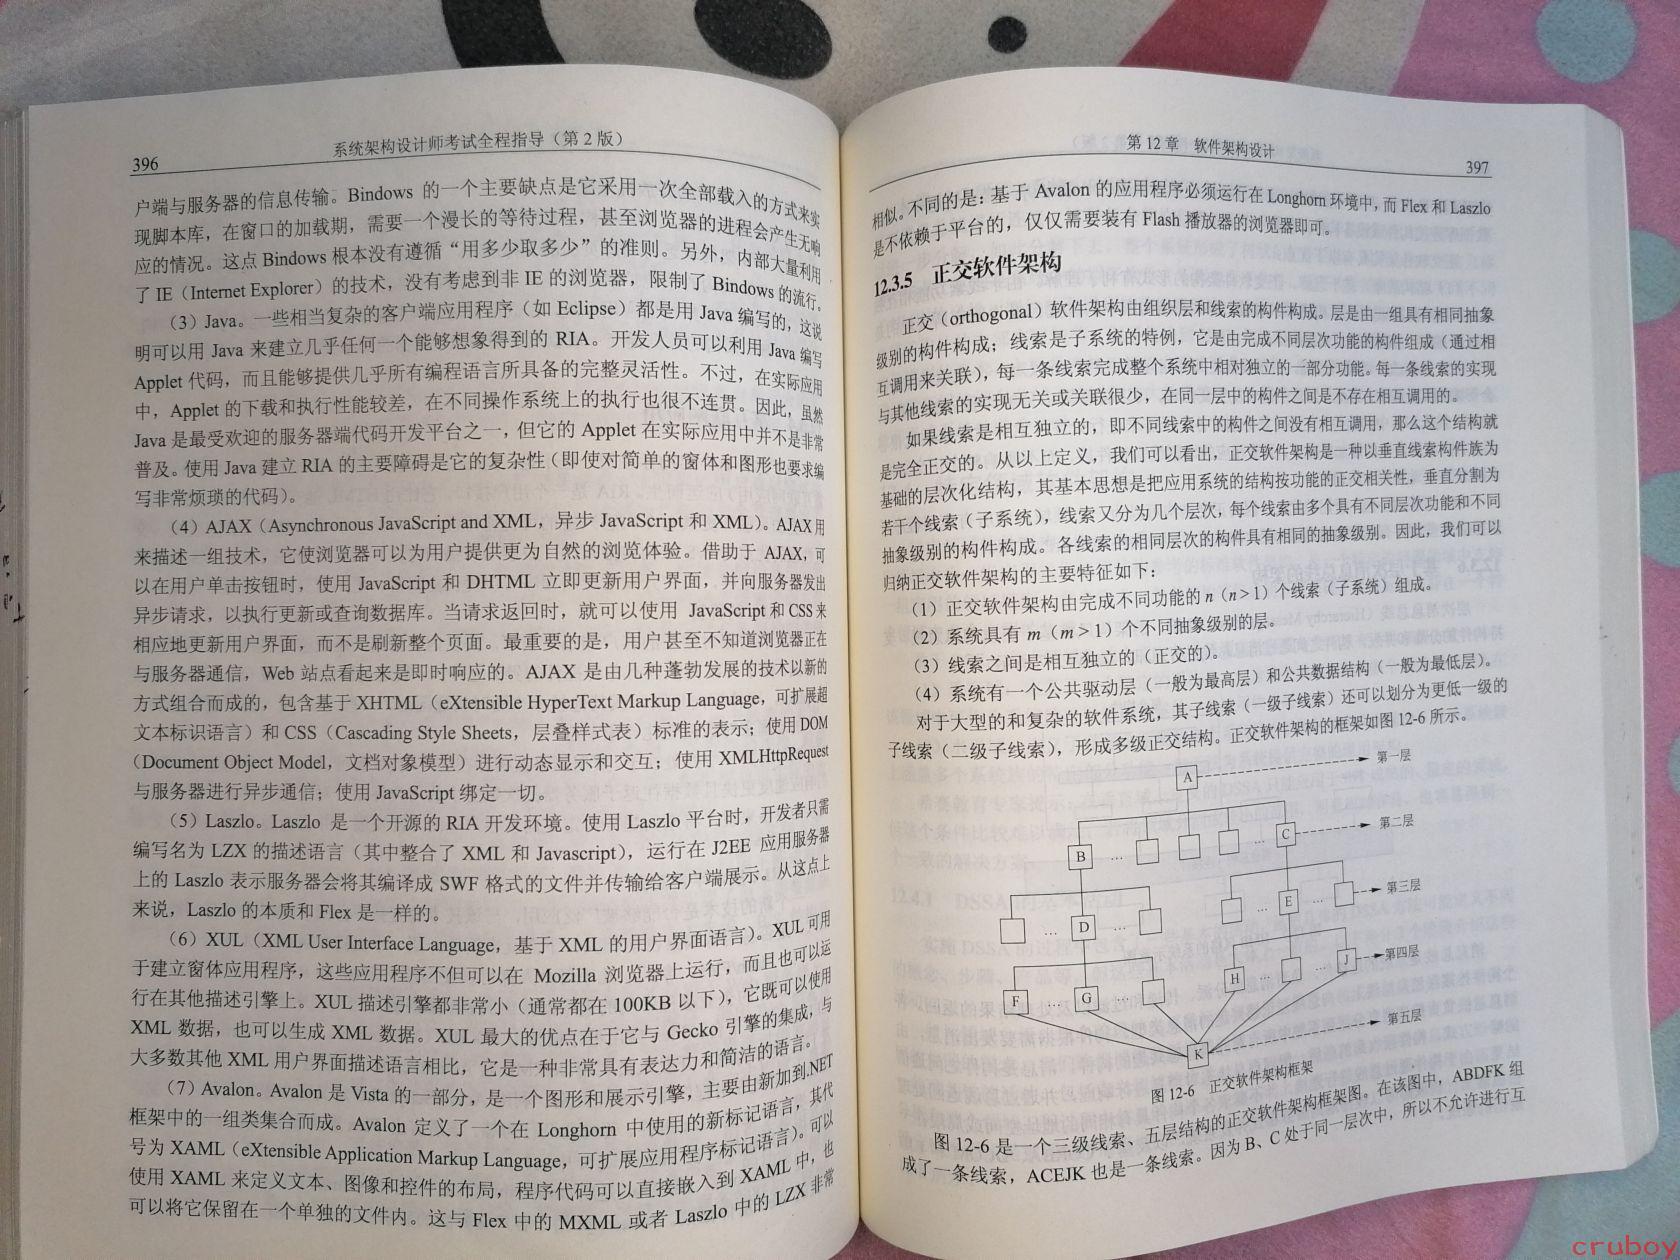 396
系统架构设计师考试全程指导（第 2 版）
户端与服务器的信息传输。Bindows 的一个主要缺点是它采用一次全部载入的方式来实
现脚本库，在窗口的加载期，需要一个漫长的等待过程，甚至浏览器的进程会产生无响
应的情况。这点 Bindows 根本没有遵循“用多少取多少”的准则。另外，内部大量利用
了 IE（Internet Explorer）的技术，没有考虑到非 IE 的浏览器，限制了 Bindows 的流行。
（3）Java。一些相当复杂的客户端应用程序（如 Eclipse）都是用 Java 编写的，这说
明可以用 Java 来建立几乎任何一个能够想象得到的 RIA。开发人员可以利用 Java 编写
Applet 代码，而且能够提供几乎所有编程语言所具备的完整灵活性。不过，在实际应用
中，Applet 的下载和执行性能较差，在不同操作系统上的执行也很不连贯。因此，虽然
Java 是最受欢迎的服务器端代码开发平台之一，但它的 Applet 在实际应用中并不是非常
普及。使用 Java 建立 RIA 的主要障碍是它的复杂性（即使对简单的窗体和图形也要求编
写非常烦琐的代码）。
（4）AJAX（Asynchronous JavaScript and XML，异步 JavaScript 和 XML）。AJAX 用
来描述一组技术，它使浏览器可以为用户提供更为自然的浏览体验。借助于 AJAX，可
以在用户单击按钮时，使用 JavaScript 和 DHTML 立即更新用户界面，并向服务器发出
异步请求，以执行更新或查询数据库。当请求返回时，就可以使用 JavaScript 和 CSS 来
相应地更新用户界面，而不是刷新整个页面。最重要的是，用户甚至不知道浏览器正在
与服务器通信，Web 站点看起来是即时响应的。AJAX 是由几种蓬勃发展的技术以新的
方式组合而成的，包含基于 XHTML（eXtensible HyperText Markup Language，可扩展超
文本标识语言）和 CSS（Cascading Style Sheets，层叠样式表）标准的表示；使用 DOM
（Document Object Model，文档对象模型）进行动态显示和交互；使用 XMLHttpRequest
与服务器进行异步通信；使用 JavaScript 绑定一切。
（5）Laszlo。Laszlo 是一个开源的 RIA 开发环境。使用 Laszlo 平台时，开发者只需
编写名为 LZX 的描述语言（其中整合了 XML 和 Javascript），运行在 J2EE 应用服务器
上的 Laszlo 表示服务器会将其编译成 SWF 格式的文件并传输给客户端展示。从这点上
来说，Laszlo 的本质和 Flex 是一样的。
（6）XUL（XML User Interface Language，基于 XML 的用户界面语言）。XUL 可用
于建立窗体应用程序，这些应用程序不但可以在 Mozilla 浏览器上运行，而且也可以运
行在其他描述引擎上。XUL 描述引擎都非常小（通常都在 100KB 以下），它既可以使用
XML 数据，也可以生成 XML 数据。XUL 最大的优点在于它与 Gecko 引擎的集成，与
大多数其他 XML 用户界面描述语言相比，它是一种非常具有表达力和简洁的语言。
（7）Avalon。Avalon 是 Vista 的一部分，是一个图形和展示引擎，主要由新加到.NET
框架中的一组类集合而成。Avalon 定义了一个在 Longhorn 中使用的新标记语言，其代
号为 XAML（eXtensible Application Markup Language，可扩展应用程序标记语言）。可以
使用 XAML 来定义文本、图像和控件的布局，程序代码可以直接嵌入到 XAML 中，也
可以将它保留在一个单独的文件内。这与 Flex 中的 MXML 或者 Laszlo 中的 LZX 非常
第 12 章 软件架构设计
397
相似。不同的是：基于 Avalon 的应用程序必须运行在 Longhorn 环境中，而 Flex 和 Laszlo
是不依赖于平台的，仅仅需要装有 Flash 播放器的浏览器即可。
12.3.5 正交软件架构
正交（orthogonal）软件架构由组织层和线索的构件构成。层是由一组具有相同抽象
级别的构件构成；线索是子系统的特例，它是由完成不同层次功能的构件组成（通过相
互调用来关联），每一条线索完成整个系统中相对独立的一部分功能。每一条线索的实现
与其他线索的实现无关或关联很少，在同一层中的构件之间是不存在相互调用的。
如果线索是相互独立的，即不同线索中的构件之间没有相互调用，那么这个结构就
是完全正交的。从以上定义，我们可以看出，正交软件架构是一种以垂直线索构件族为
基础的层次化结构，其基本思想是把应用系统的结构按功能的正交相关性，垂直分割为
若干个线索（子系统），线索又分为几个层次，每个线索由多个具有不同层次功能和不同
抽象级别的构件构成。各线索的相同层次的构件具有相同的抽象级别。因此，我们可以
归纳正交软件架构的主要特征如下：
（1）正交软件架构由完成不同功能的 n（n > 1）个线索（子系统）组成。
（2）系统具有 m（m > 1）个不同抽象级别的层。
（3）线索之间是相互独立的（正交的）。
（4）系统有一个公共驱动层（一般为最高层）和公共数据结构（一般为最低层）。
对于大型的和复杂的软件系统，其子线索（一级子线索）还可以划分为更低一级的
子线索（二级子线索），形成多级正交结构。正交软件架构的框架如图 12-6 所示。
A 第一层
B … … C 第二层
… D … … E 第三层
F … G … H … … J 第四层
K 第五层
图 12-6 正交软件架构框架
图 12-6 是一个三级线索、五层结构的正交软件架构框架图。在该图中，ABDFK 组
成了一条线索，ACEJK 也是一条线索。因为 B、C 处于同一层次中，所以不允许进行互
cruboy